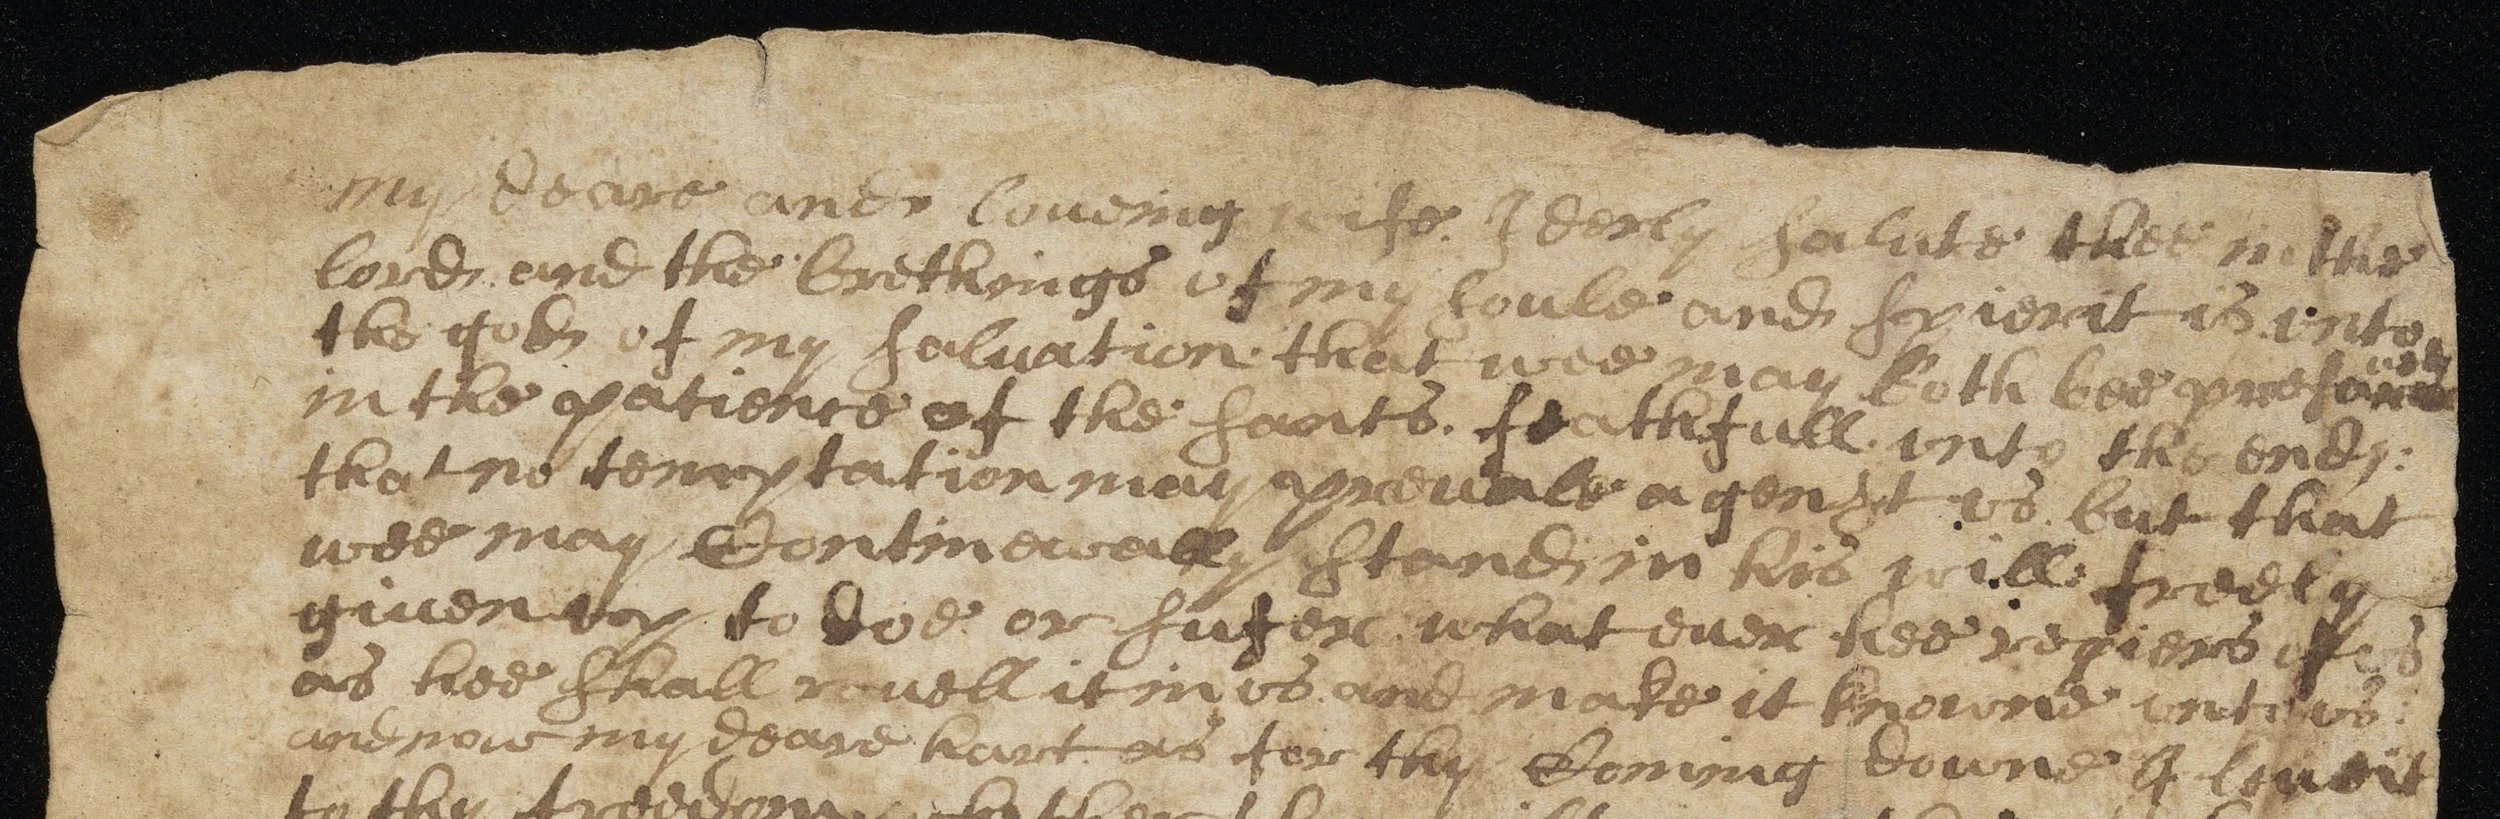 my deare and loveing wife. I derly salute thee in the
lord and the brethings of my soule and spierit is unto
the god of my saluation that wee may both bee presarued
in the patience of the sants. feathfull unto the end:
that no temptation may prevale agenst us but that
wee may Continewally stand in his will freely
given up to doe or sufer what ever hee reqiers of us
as hee shall revell it in us and make it knowne unto us:
and now my deare hart as for thy Coming downe I leaveit
to thy freedom